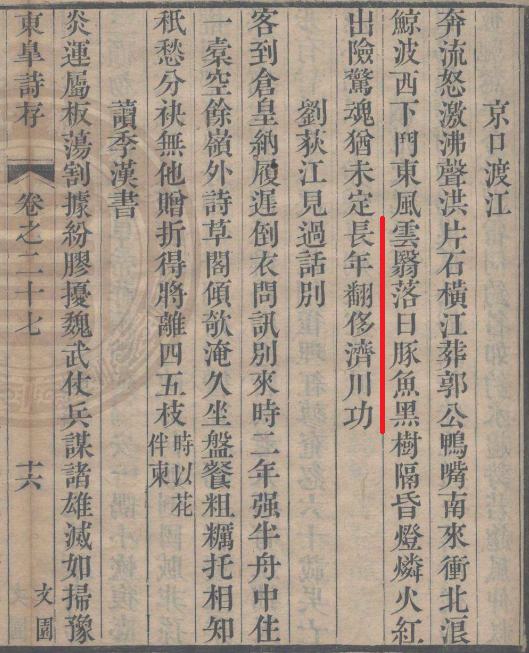 京口渡江
奔流怒激沸聲洪片石橫江葬郭公鴨嘴南來衝北浪
鯨波西下鬥東風雲翳落日豚魚黑樹隔昏燈燐火紅
出險驚魂猶未定長年翻侈濟川功
劉荻江見過話別
客到倉皇納履遲倒衣問訊別來時二年强半舟中住
一橐空餘嶺外詩草閣傾欹淹久坐盤餐粗糲托相知
祇愁分袂無他贈折得將離四五枝時以花伴柬
讀季漢書
炎運屬板蕩割據紛膠擾魏武仗兵謀諸雄滅如掃豫
東皐詩存 卷之二十七 十六 文園